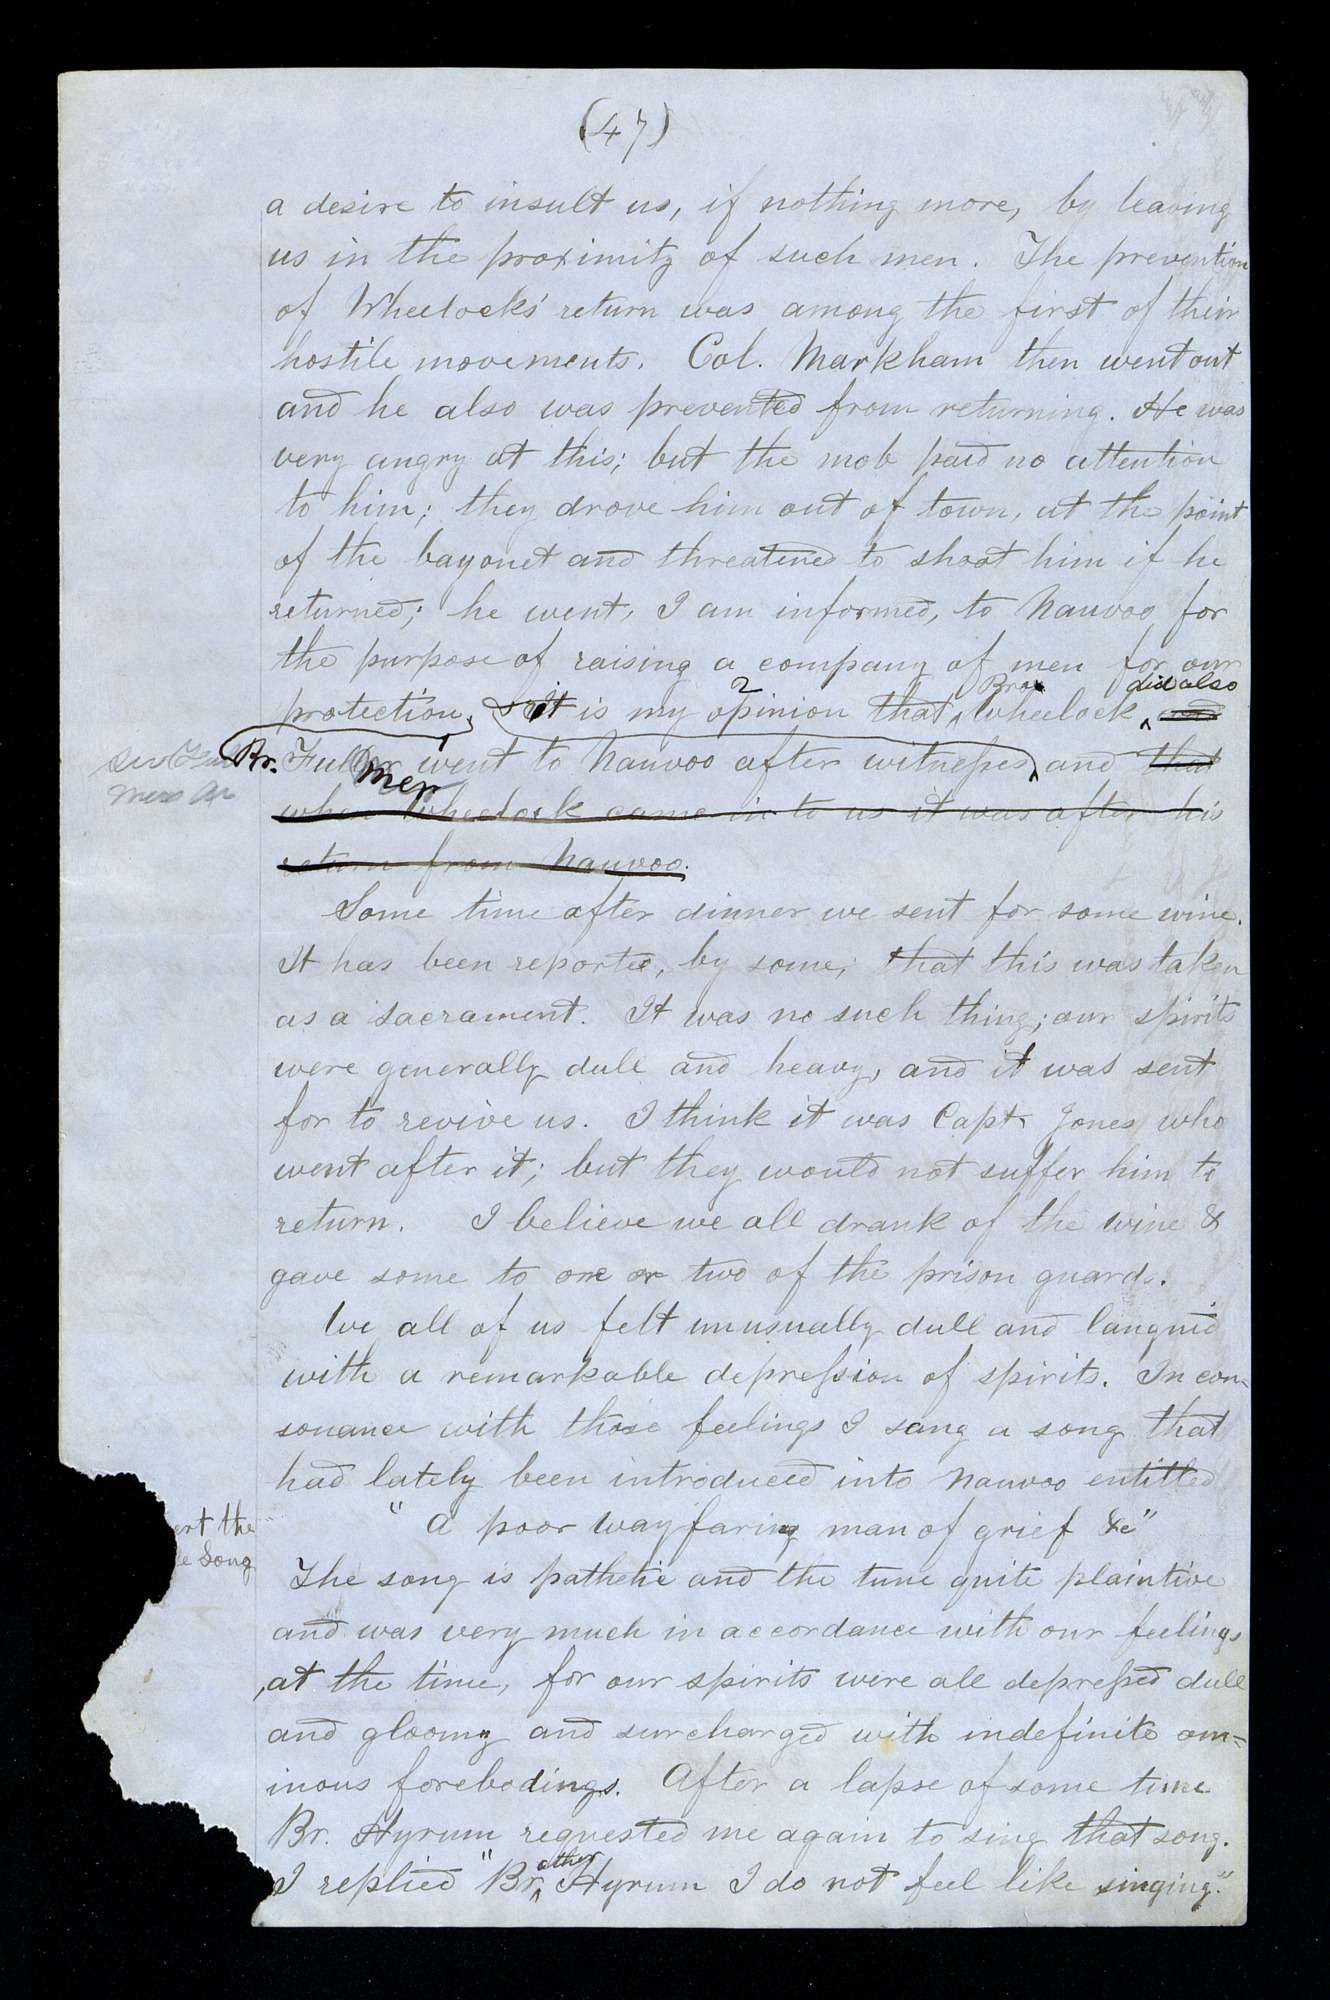 (47)
a desire to insult us, if nothing more, by leaving
us in the proximity of such men. The prevention
of Wheelocks' return was among the first of their
hostile movements. Col. Markham then went out
and he also was prevented from returning. He was
very angry at this; but the mob paid no attention
to him; they drove him out of town, at the point
of the bayonet and threatened to shoot him if he
returned; he went, I am informed, to Nauvoo for
the purpose of raising a company of men for our
2 Bro. did also
protection, It is my opinion that, Wheelock and
Br. Fullmer went to Nauvoo after witnesses, and that
mer
when Wheelock came in to us it was after his
return from Nauvoo.
Some time after dinner we sent for some wine.
It has been reported, by some; that this was taken
as a sacrament. It was no such thing; our spirits
were generally dull and heavy, and it was sent
for to revive us. I think it was Capt. Jones who
went after it; but they would not suffer him to
return. I believe we all drank of the wine &
gave some to one or two of the prison guards.
We all of us felt unusually dull and languid
with a remarkable depression of spirits. In con=
sonance with those feelings I sang a song that
had lately been introduced into Nauvoo entitled
"A poor wayfaring man of grief &c"
ert the
e Song
The song is pathetic and the tune quite plaintive
and was very much in accordance with our feelings
at the time, for our spirits were all depressed dull
and gloomy and surcharged with indefinite om=
inous forebodings. After a lapse of some time
Br. Hyrum requested me again to sing that song.
other
I replied "Br, Hyrum I do not feel like singing."